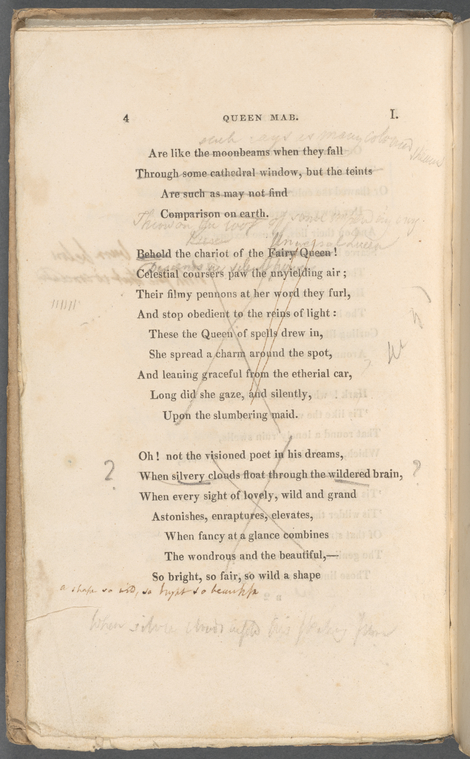 4 QUEEN MAB. I.
such rays as many coloured
Are like the moonbeams when they fall
Through some cathedral window, but the teints
Are such as may not find
Comparison on earth.
of some
Behold the chariot of the Fairy Queen!
Celestial coursers paw the unyielding air;
Their filmy pennons at her word they furl,
And stop obedient to the reins of light:
These the Queen of spells drew in,
She spread a charm around the spot,
And leaning graceful from the etherial car,
Long did she gaze, and silently,
Upon the slumbering maid.
Oh! not the visioned poet in his dreams,
? When silvery clouds float through the wildered brain, ?
When every sight of lovely, wild and grand
Astonishes, enraptures, elevates,
When fancy at a glance combines
The wondrous and the beautiful,—
So bright, so fair, so wild a shape
a shape so wild, so bright so beautiful
When silver clouds